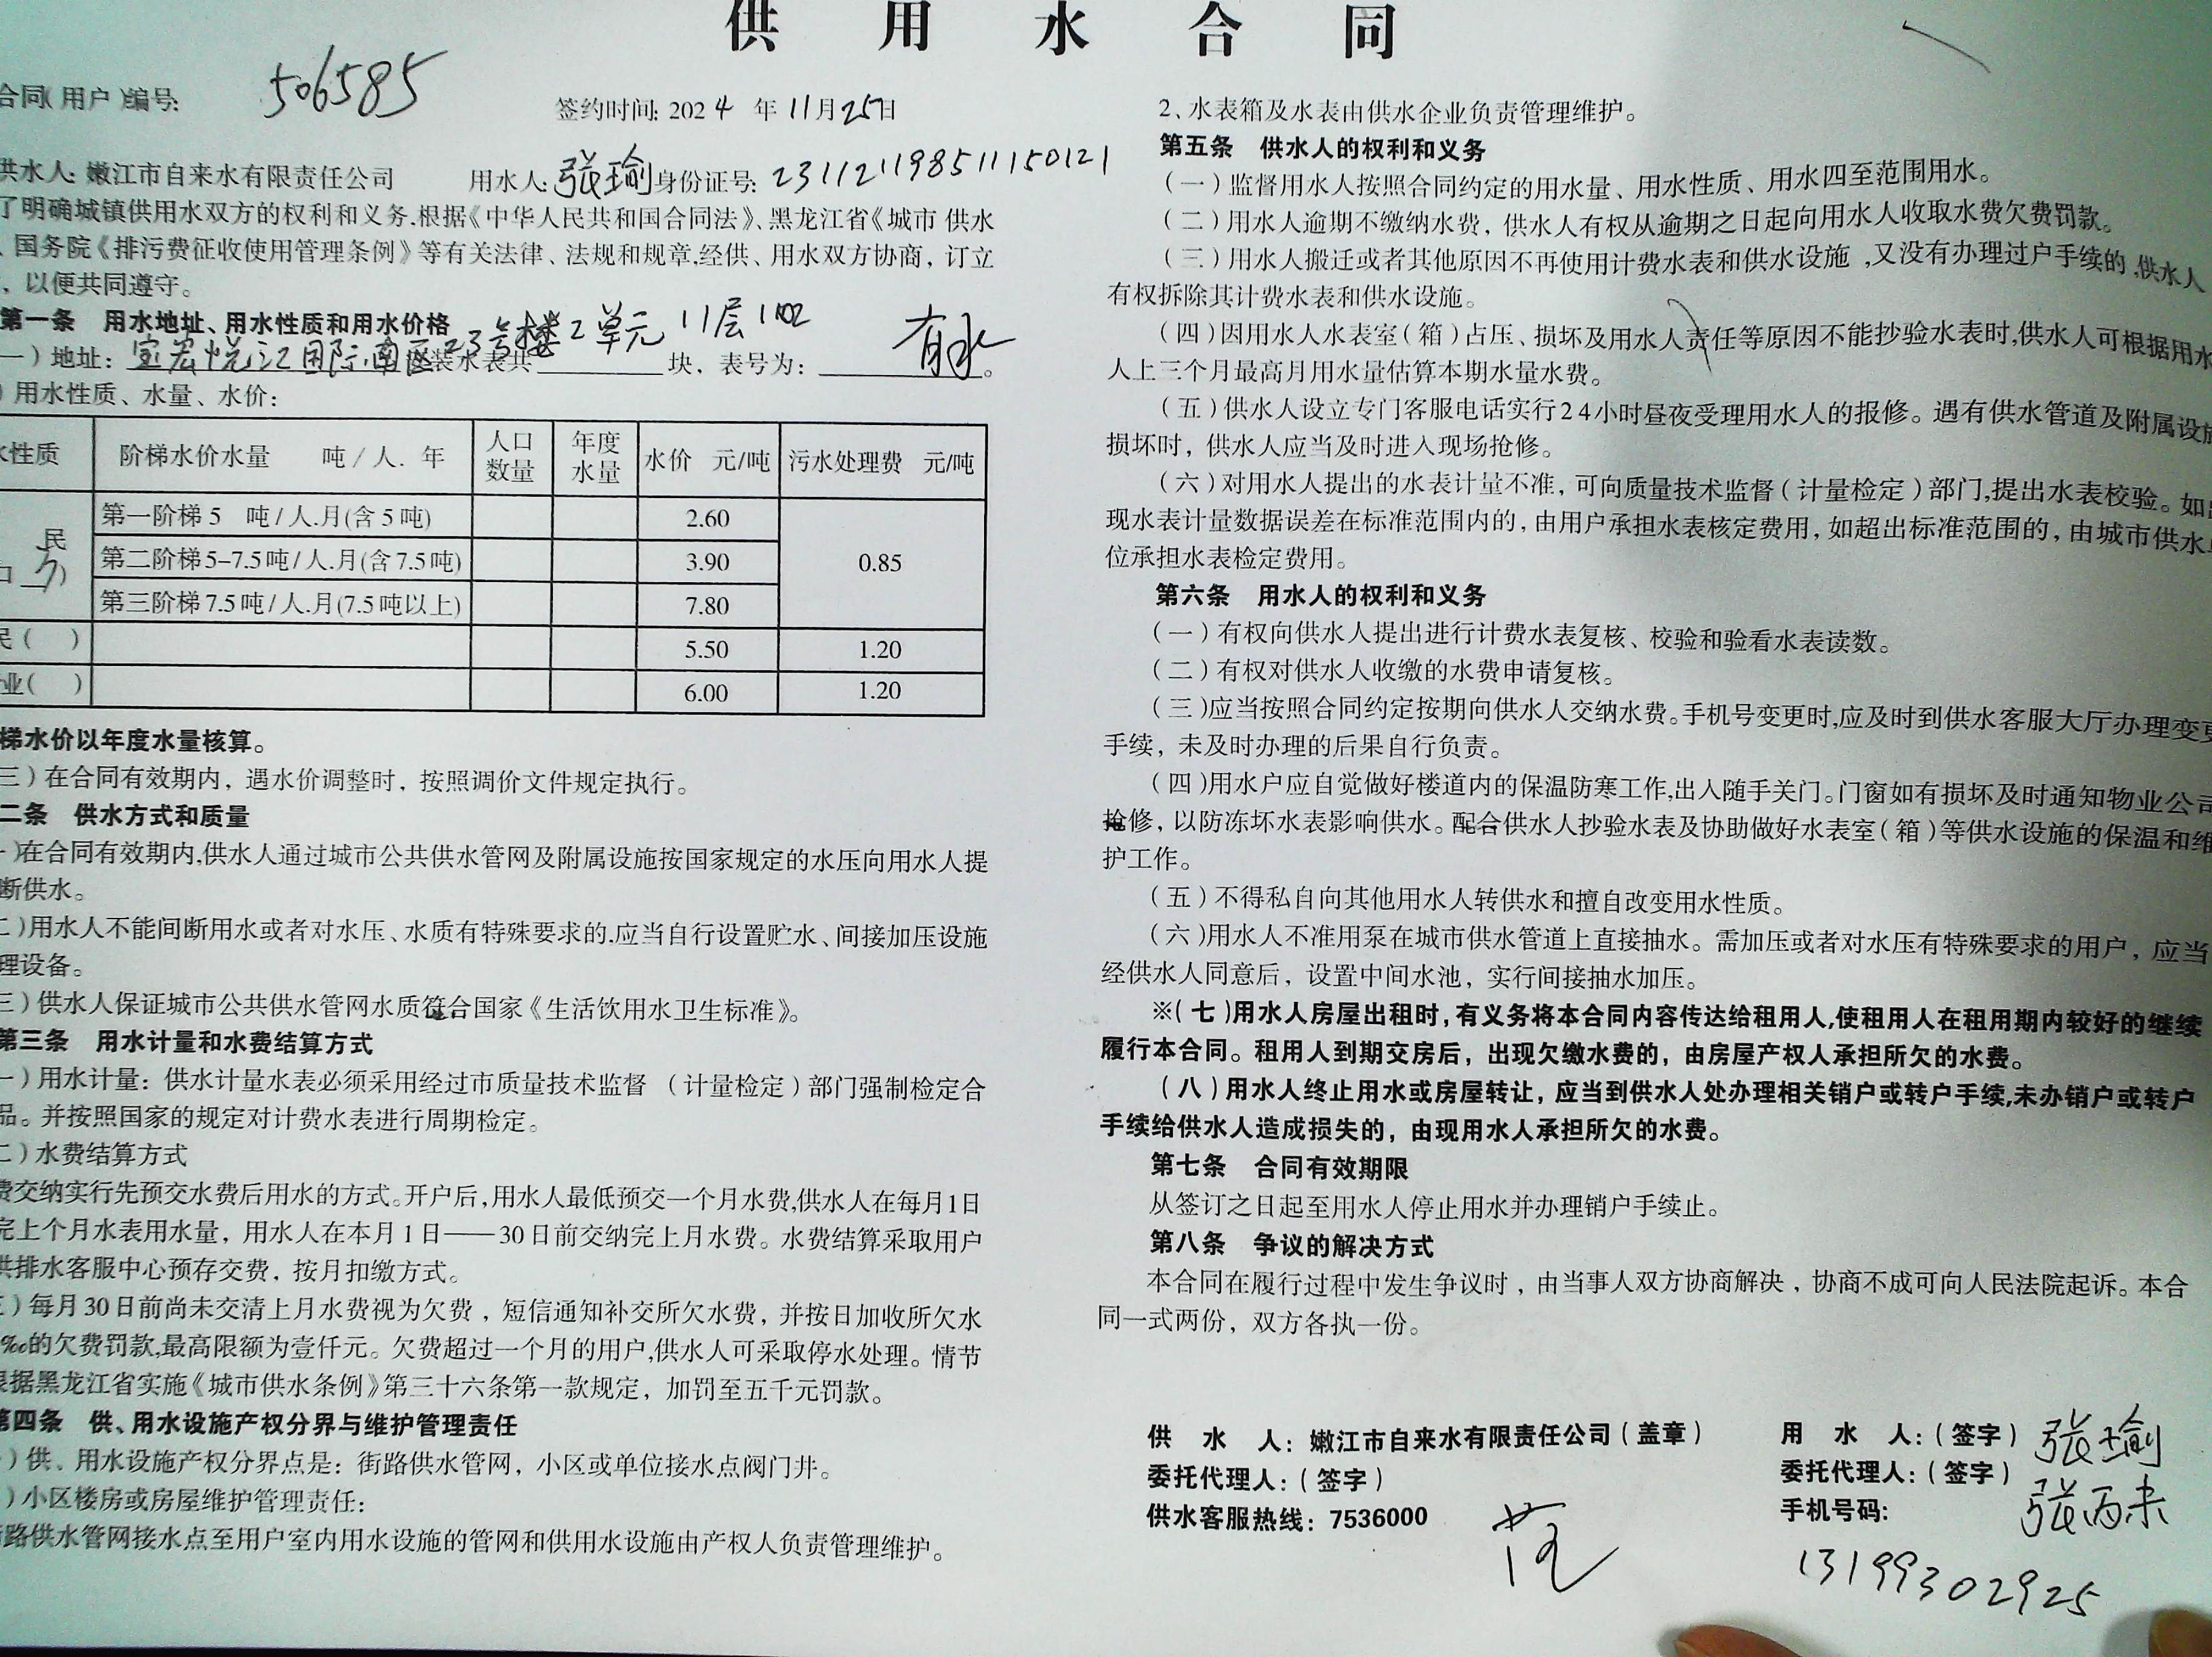 供 用 水 合 同
合同(用户)编号: 506585
签约时间: 2024 年 11月25日
供水人: 嫩江市自来水有限责任公司 用水人: 张瑜 身份证号: 231121198511150121
了明确城镇供用水双方的权利和义务,根据《中华人民共和国合同法》、黑龙江省《城市 供水
、国务院《排污费征收使用管理条例》等有关法律、法规和规章,经供、用水双方协商，订立
，以便共同遵守。
第一条 用水地址、用水性质和用水价格
一）地址： 宝宏悦江国际南区23号楼2单元 11层1102 装水表共 块，表号为： 有水 。
）用水性质、水量、水价：
水性质 阶梯水价水量 吨/人. 年 人口数量 年度水量 水价 元/吨 污水处理费 元/吨
民 第一阶梯 5 吨/人.月(含 5 吨) 2.60 0.85
第二阶梯 5–7.5吨/人.月(含 7.5吨) 3.90
第三阶梯 7.5 吨/人.月(7.5 吨以上) 7.80
民( ) 5.50 1.20
业( ) 6.00 1.20
梯水价以年度水量核算。
三）在合同有效期内，遇水价调整时，按照调价文件规定执行。
二条 供水方式和质量
)在合同有效期内,供水人通过城市公共供水管网及附属设施按国家规定的水压向用水人提
断供水。
二)用水人不能间断用水或者对水压、水质有特殊要求的,应当自行设置贮水、间接加压设施
理设备。
三）供水人保证城市公共供水管网水质符合国家《生活饮用水卫生标准》。
第三条 用水计量和水费结算方式
一）用水计量：供水计量水表必须采用经过市质量技术监督（计量检定）部门强制检定合
品。并按照国家的规定对计费水表进行周期检定。
二）水费结算方式
费交纳实行先预交水费后用水的方式。开户后,用水人最低预交一个月水费,供水人在每月1日
完上个月水表用水量，用水人在本月 1 日——30 日前交纳完上月水费。水费结算采取用户
供排水客服中心预存交费，按月扣缴方式。
三）每月 30 日前尚未交清上月水费视为欠费，短信通知补交所欠水费，并按日加收所欠水
‰的欠费罚款,最高限额为壹仟元。欠费超过一个月的用户,供水人可采取停水处理。情节
根据黑龙江省实施《城市供水条例》第三十六条第一款规定，加罚至五千元罚款。
第四条 供、用水设施产权分界与维护管理责任
）供、用水设施产权分界点是：街路供水管网，小区或单位接水点阀门井。
）小区楼房或房屋维护管理责任：
路供水管网接水点至用户室内用水设施的管网和供用水设施由产权人负责管理维护。
2、水表箱及水表由供水企业负责管理维护。
第五条 供水人的权利和义务
（一）监督用水人按照合同约定的用水量、用水性质、用水四至范围用水。
（二）用水人逾期不缴纳水费，供水人有权从逾期之日起向用水人收取水费欠费罚款。
（三）用水人搬迁或者其他原因不再使用计费水表和供水设施,又没有办理过户手续的,供水人
有权拆除其计费水表和供水设施。
（四）因用水人水表室（箱）占压、损坏及用水人责任等原因不能抄验水表时,供水人可根据用水
人上三个月最高月用水量估算本期水量水费。
（五）供水人设立专门客服电话实行24小时昼夜受理用水人的报修。遇有供水管道及附属设施
损坏时，供水人应当及时进入现场抢修。
（六）对用水人提出的水表计量不准，可向质量技术监督（计量检定）部门,提出水表校验。如
现水表计量数据误差在标准范围内的，由用户承担水表核定费用，如超出标准范围的，由城市供水
位承担水表检定费用。
第六条 用水人的权利和义务
（一）有权向供水人提出进行计费水表复核、校验和验看水表读数。
（二）有权对供水人收缴的水费申请复核。
（三）应当按照合同约定按期向供水人交纳水费。手机号变更时,应及时到供水客服大厅办理变更
手续，未及时办理的后果自行负责。
（四）用水户应自觉做好楼道内的保温防寒工作,出入随手关门。门窗如有损坏及时通知物业公司
抢修，以防冻坏水表影响供水。配合供水人抄验水表及协助做好水表室（箱）等供水设施的保温和维
护工作。
（五）不得私自向其他用水人转供水和擅自改变用水性质。
（六）用水人不准用泵在城市供水管道上直接抽水。需加压或者对水压有特殊要求的用户，应当
经供水人同意后，设置中间水池，实行间接抽水加压。
※（七）用水人房屋出租时,有义务将本合同内容传达给租用人,使租用人在租用期内较好的继续
履行本合同。租用人到期交房后，出现欠缴水费的，由房屋产权人承担所欠的水费。
（八）用水人终止用水或房屋转让，应当到供水人处办理相关销户或转户手续,未办销户或转户
手续给供水人造成损失的，由现用水人承担所欠的水费。
第七条 合同有效期限
从签订之日起至用水人停止用水并办理销户手续止。
第八条 争议的解决方式
本合同在履行过程中发生争议时，由当事人双方协商解决，协商不成可向人民法院起诉。本合
同一式两份，双方各执一份。
供 水 人：嫩江市自来水有限责任公司（盖章）
委托代理人：（签字）
供水客服热线：7536000
用 水 人：（签字） 张瑜
委托代理人：（签字） 张丙来
手机号码：
13199302925